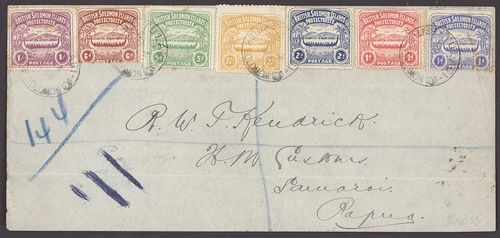 BRITISH SOLOMON ISLANDS PROTECTORATE POSTAGE
BRITISH SOLOMON ISLANDS PROTECTORATE POSTAGE
BRITISH SOLOMON ISLANDS PROTECTORATE POSTAGE
BRITISH SOLOMON ISLANDS PROTECTORATE POSTAGE
BRITISH SOLOMON ISLANDS PROTECTORATE POSTAGE
BRITISH SOLOMON ISLANDS PROTECTORATE POSTAGE
BRITISH SOLOMON ISLANDS PROTECTORATE POSTAGE
144
R. W. T. Kendrick.
H.M. Customs.
Samarai.
Papua.